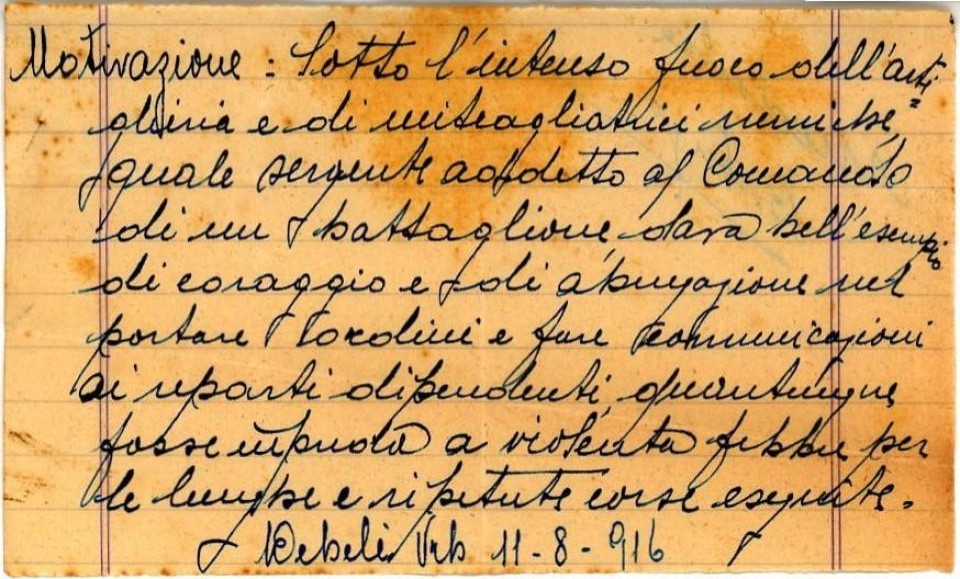 Motivazione: Sotto l'intenso fuoco dell'arti=
glieria e di mitragliatrici nemiche,
quale sergente addetto al Comando
di un battaglione, dava bell'esempio
di coraggio e di abnegazione nel
portare ordini e fare comunicazioni
ai reparti dipendenti, quantunque
fosse in preda a violenta febbre per
le lunghe e ripetute corse eseguite.
Debeli Vrh 11-8-916